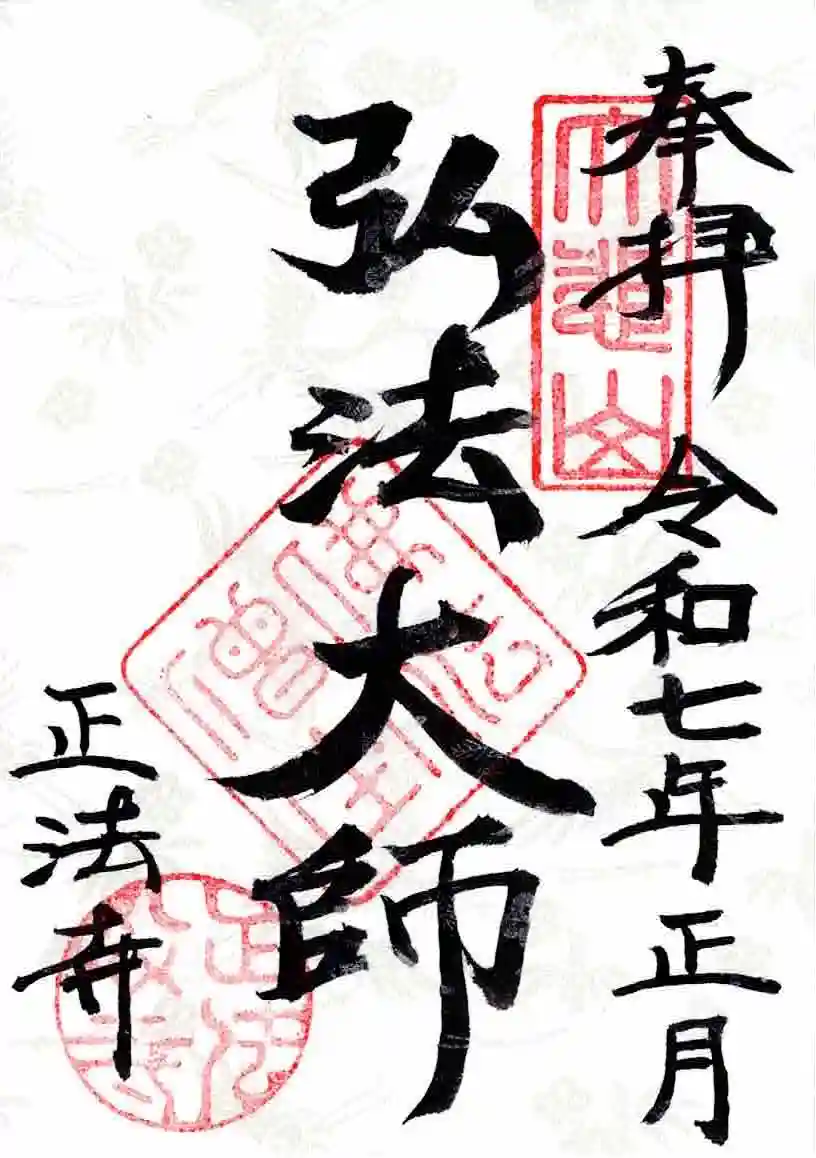 奉拝 令和七年正月
大悲山
弘法大師
正法寺